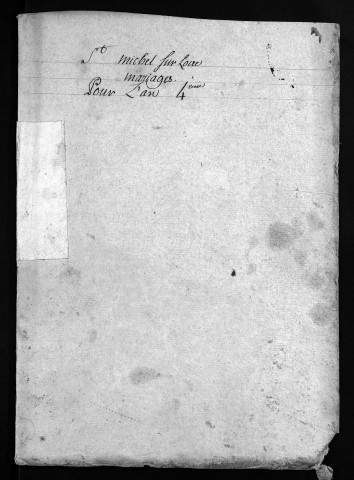 St michel sur Loire
mariages.
Pour L'an 4ième